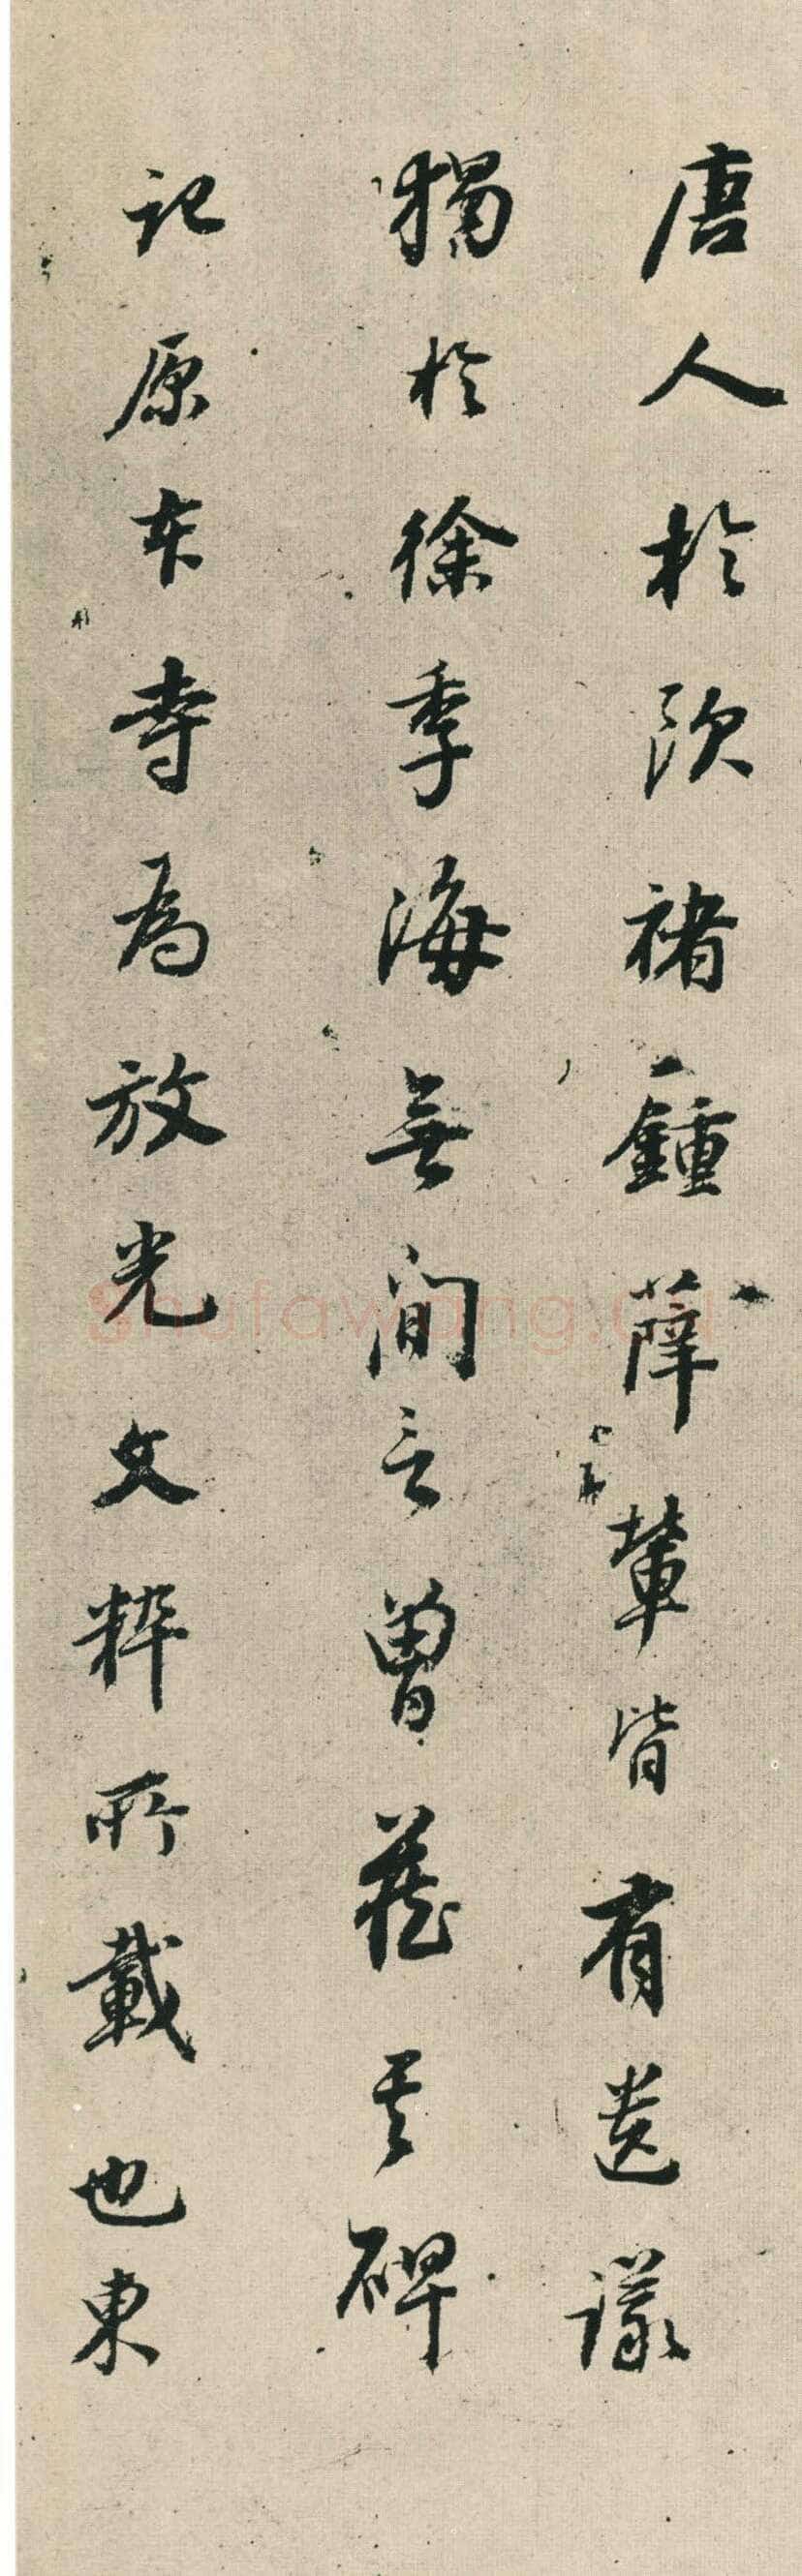 唐人於欧褚鍾薛輩皆有遺議
獨於徐季海無間言曽蔵其碑
記原本寺為放光文粹所載也東